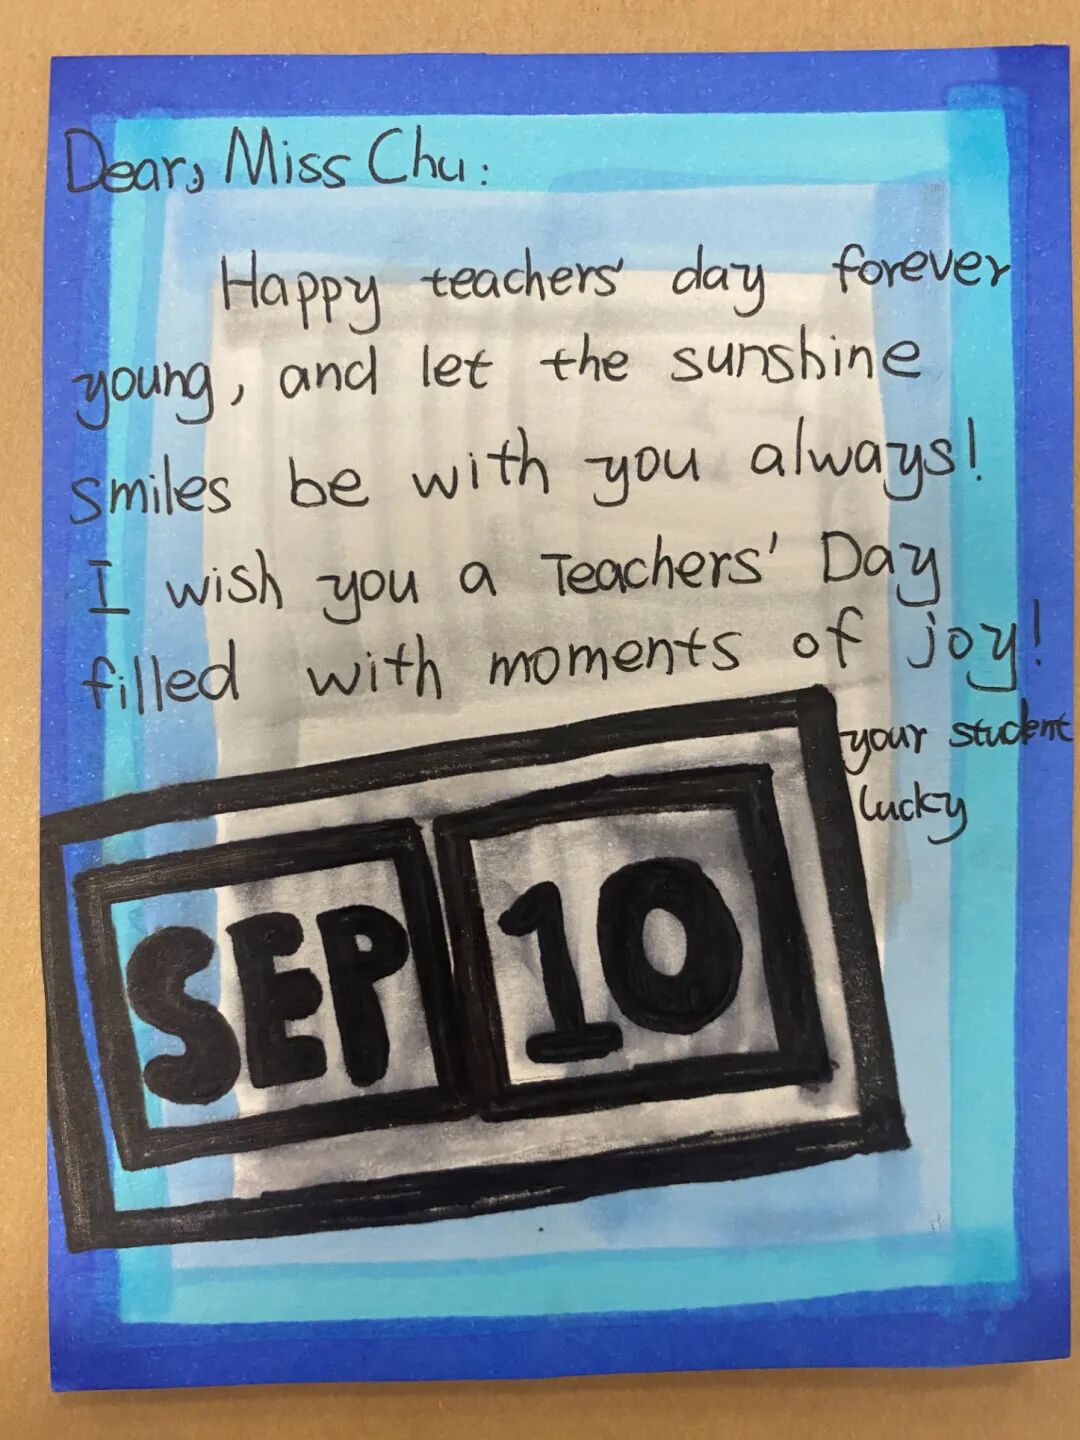 Dear, Miss Chu:
Happy teachers' day forever
young, and let the sunshine
smiles be with you always!
I wish you a Teachers' Day
filled with moments of joy!
your student
lucky
SEP 10